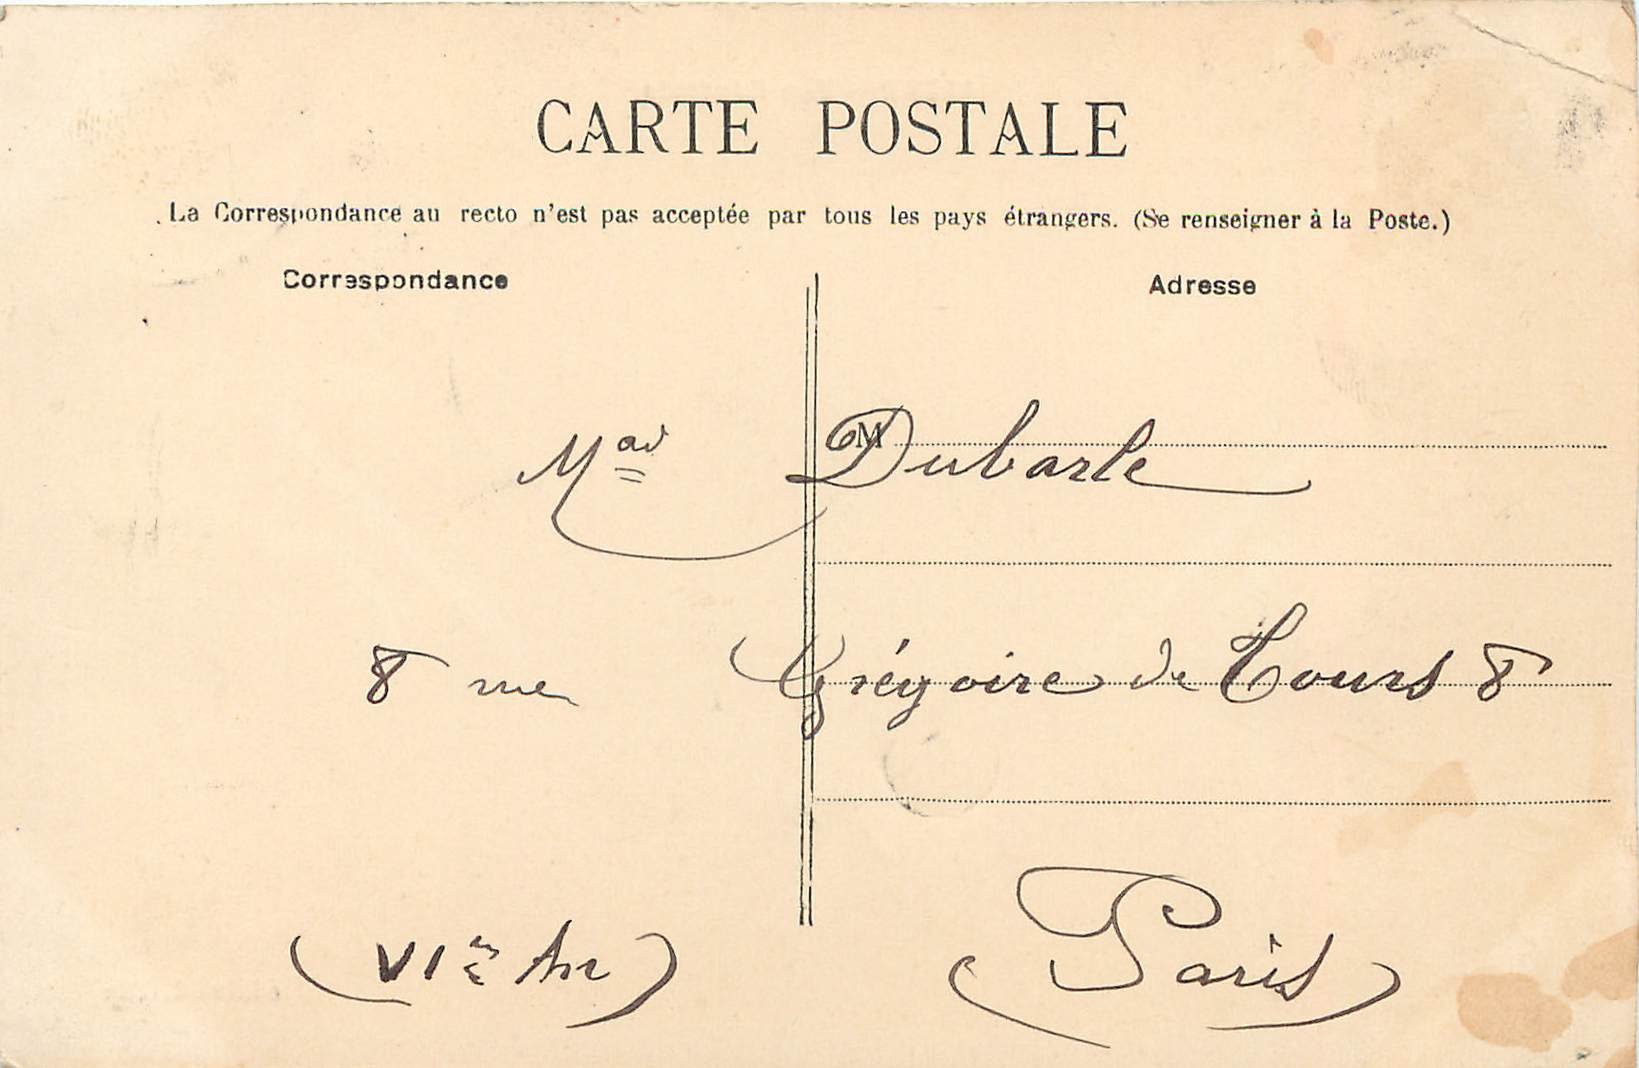 CARTE POSTALE
La Correspondance au recto n'est pas acceptée par tous les pays étrangers. (Se renseigner à la Poste.)
Correspondance Adresse
M
Mad Dubarle
8 rue Grégoire de Tours 8
(VIe Arr) (Paris)